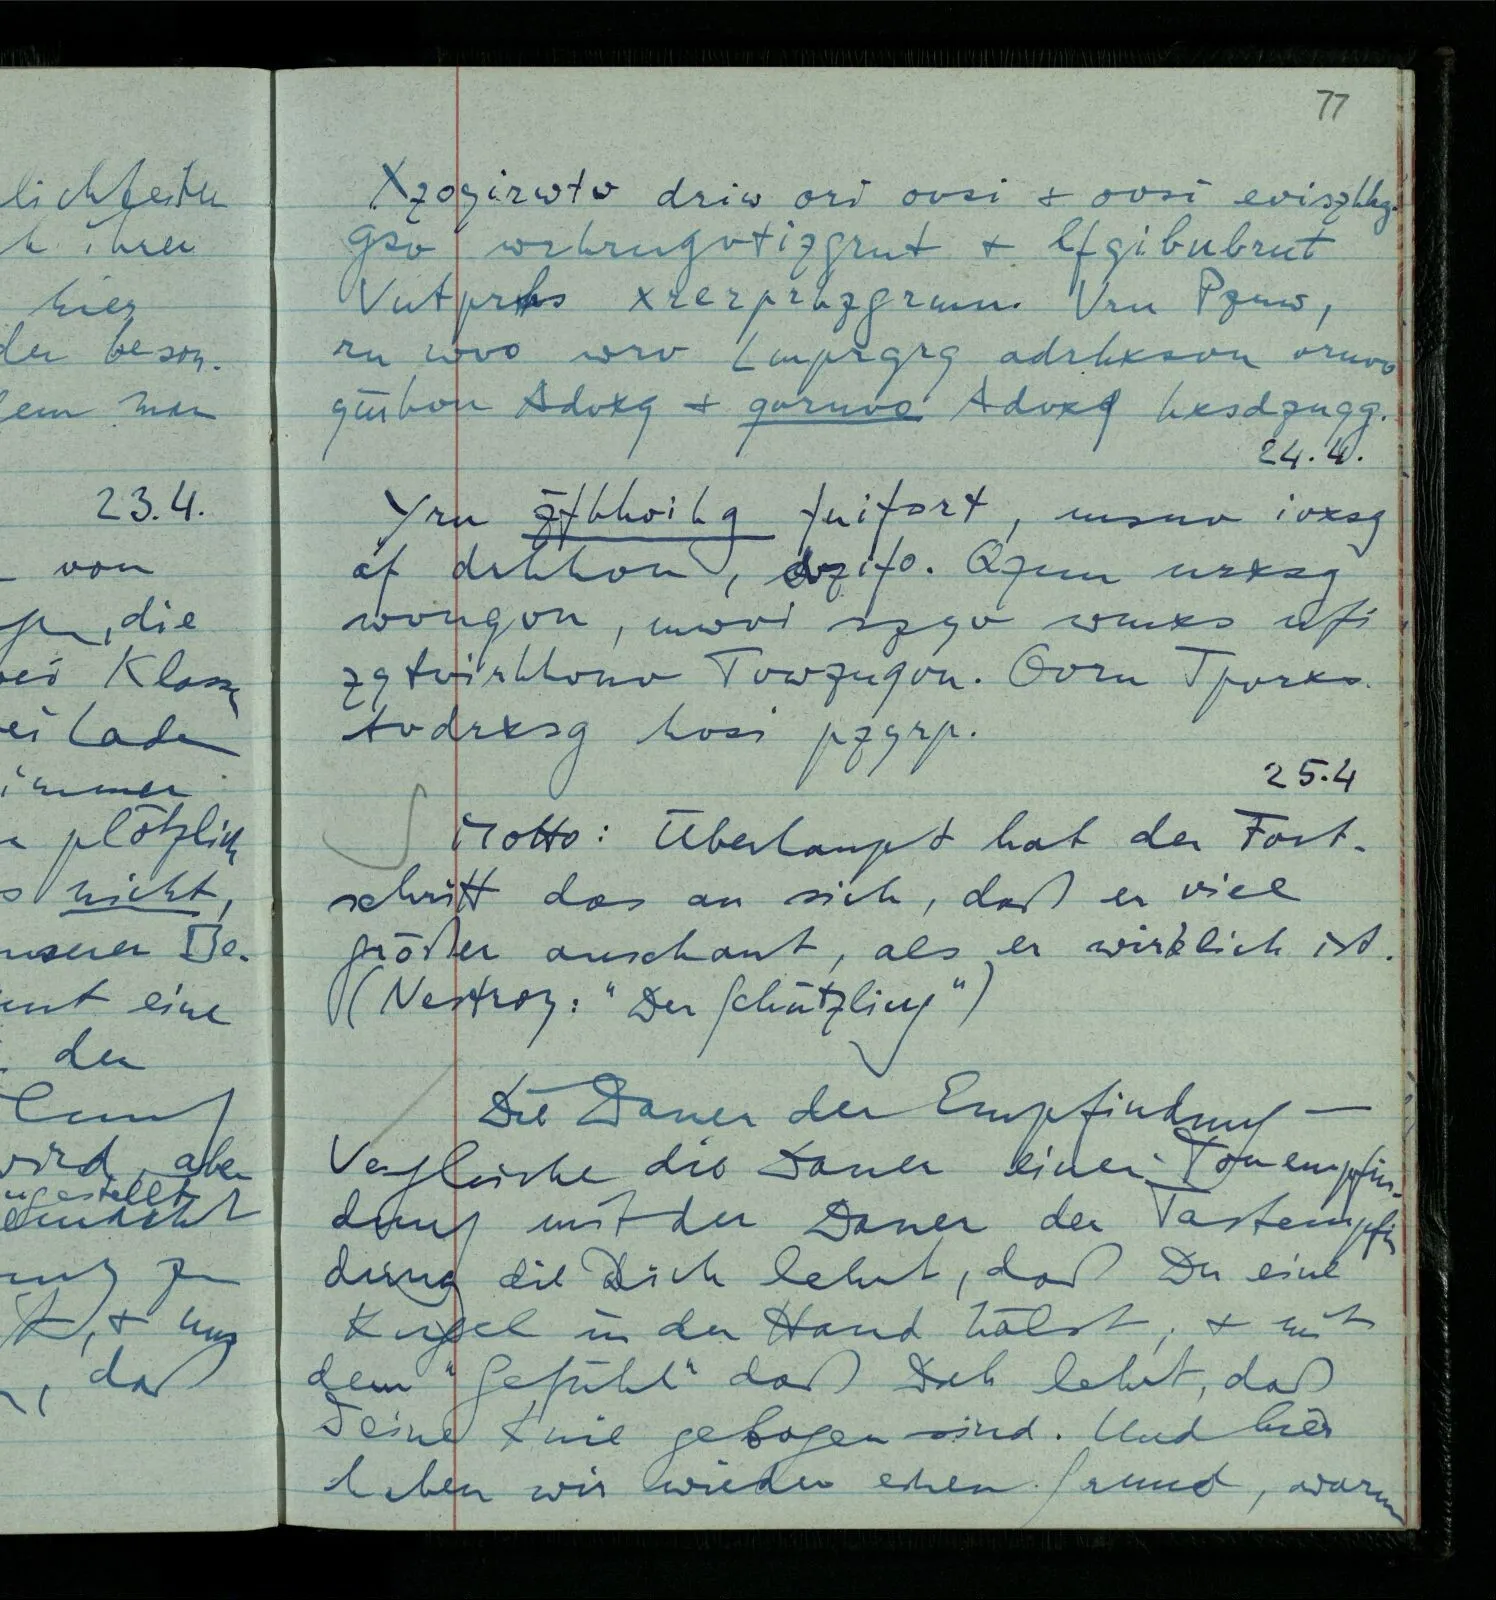 lichsten
h ihrer
hier
der beson-
dem man
23.4.
von
die
Klasse
Lade
immer
plötzlich
nicht,
unserer Be-
eine
den
wird, aber
ngestellt
& uns
daß
77
Xzoyirwtv driw ori ovsi & ovsi eviszhhg.
Gsv wrhrngvtizgrnt & lfgivubrnt
Vntprhs xrerprazgrmn. Vrn Pznw,
rn wvo wrv Lmprgrq adrhxsvn vrnvo
ym̈hvn Advxq & qvrnvo Advxq hxsdznqg.
24.4.
Yrn z̈fhhvihg fnifsrt, msnv ivxsg
af drhhvn, dzifo. Qznn nrxsg
wvnqvn, mwvi szyv wmxs nfi
zytvirhhvnv Tvwznqvn. Ovrn Tpvrxs-
tvdrxsg hvsi pzyrp.
25.4
Motto: Überhaupt hat der Fort-
schritt das an sich, daß er viel
größer ausschaut, als er wirklich ist.
(Nestroy: "Der Schützling")
Die Dauer der Empfindung —
Vergleiche die Dauer einer Tonempfin-
dung mit der Dauer der Tastempfin
dung die Dich lehrt, daß Du eine
Kugel in der Hand hälst; & mit
dem "Gefühl" daß Dich lehrt, daß
Deine Knie gebogen sind. Und hier
haben wir wieder einen Grund, warum